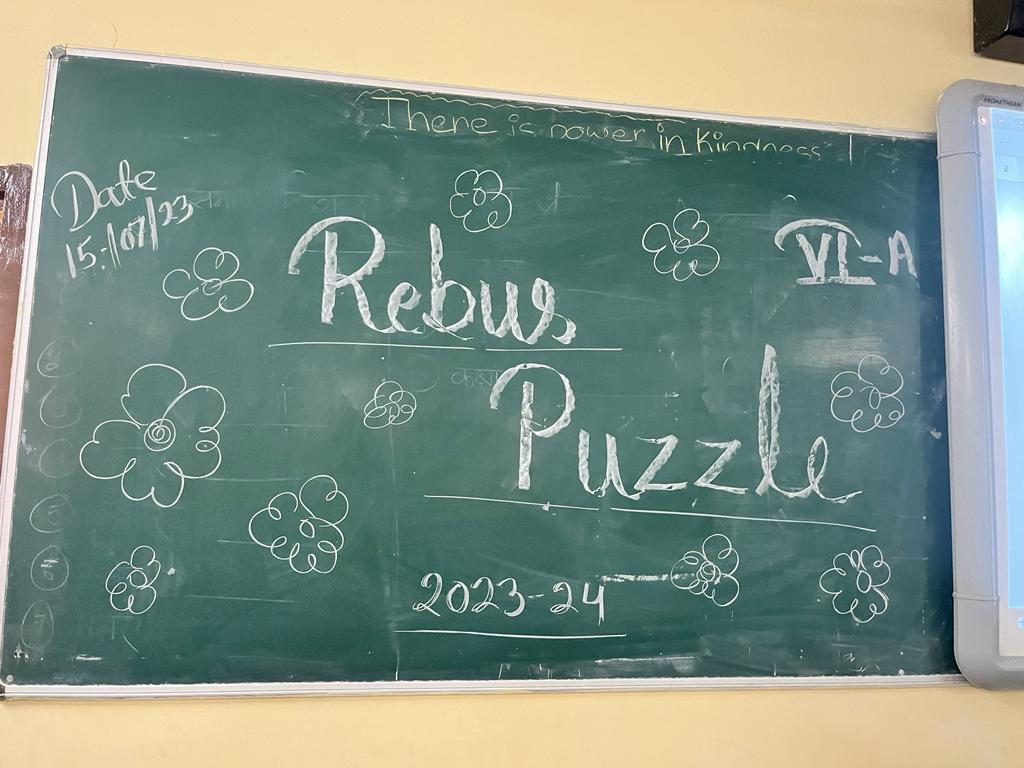 There is power in Kindness
Date
15:/07/23
VI-A
Rebus
Puzzle
2023-24
PROMETHEAN
2
5
7